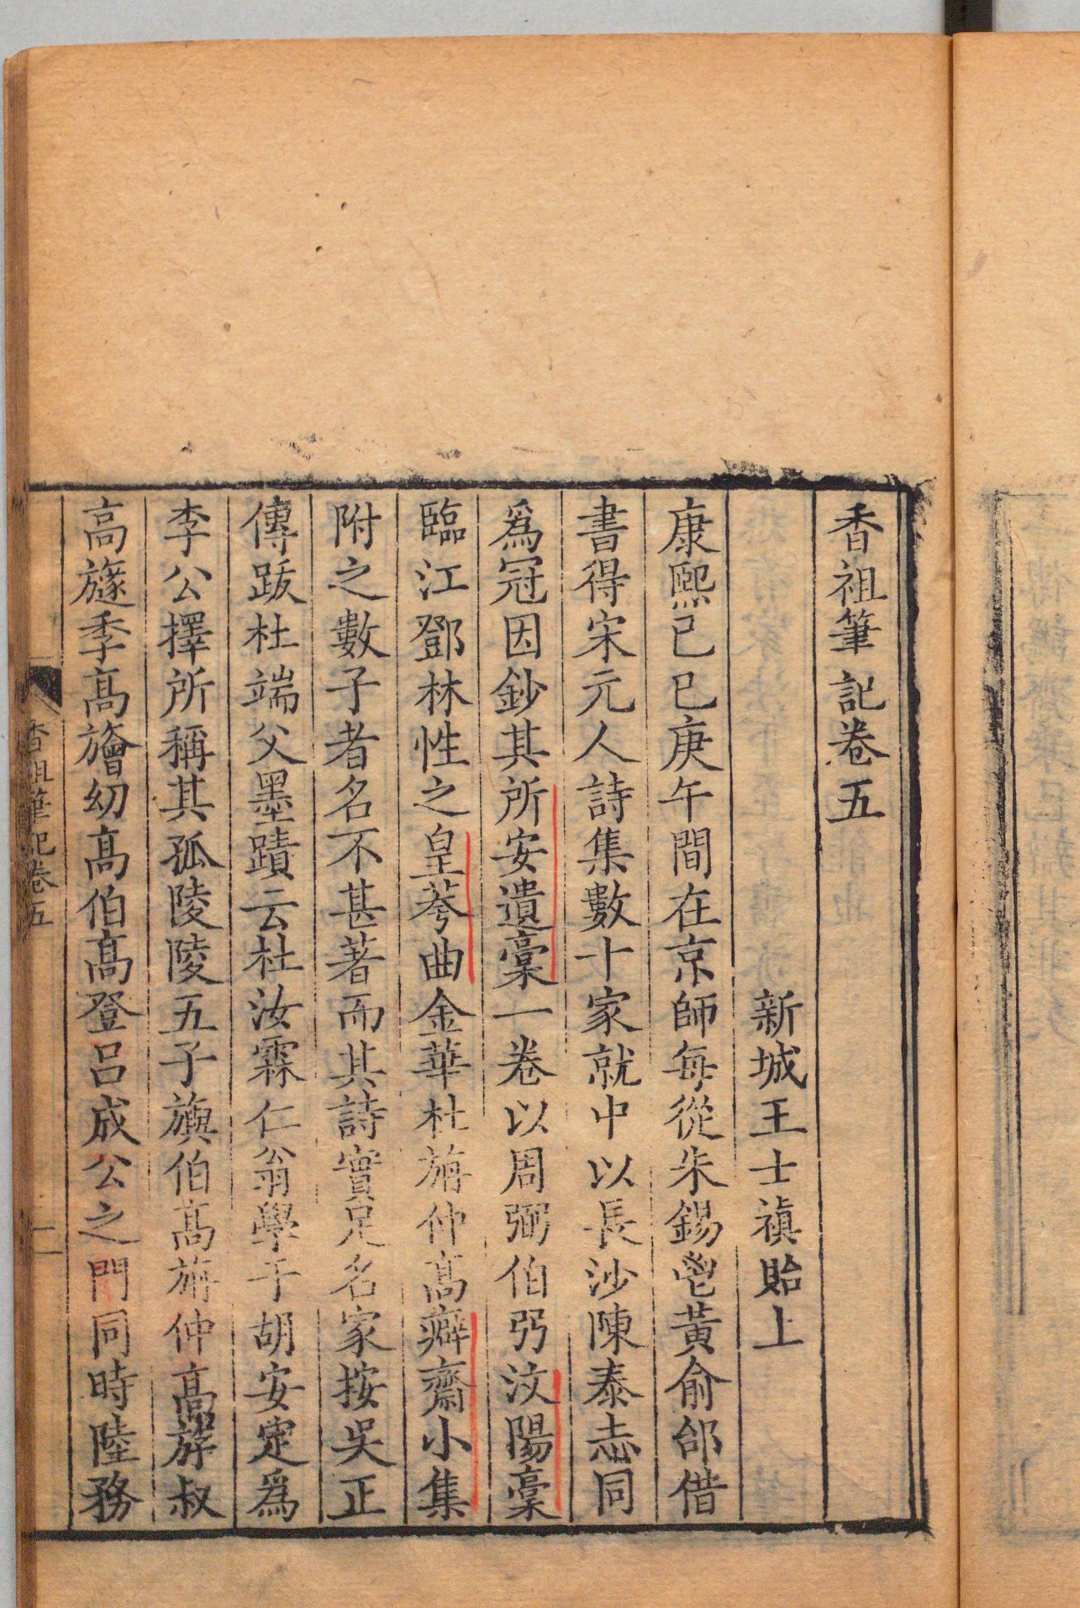 香祖筆記卷五
新城王士禛貽上
康熙己巳庚午間在京師每從朱錫鬯黃俞邰借
書得宋元人詩集數十家就中以長沙陳泰志同
爲冠因鈔其所安遺稾一卷以周弼伯弜汶陽稾
臨江鄧林性之皇荂曲金華杜旃仲髙癖齋小集
附之數子者名不甚著而其詩實足名家按吳正
傳跋杜端父墨蹟云杜汝霖仁翁學于胡安定爲
李公擇所稱其孤陵陵五子旟伯髙旃仲髙斿叔
高旞季髙旝幼髙伯髙登呂成公之門同時陸務
香祖筆記卷五
一